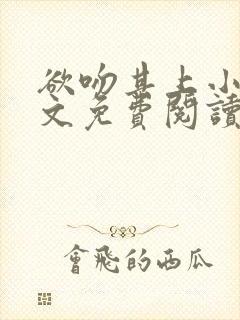 欲吻其上小
文免費閱讀
會飛的西瓜